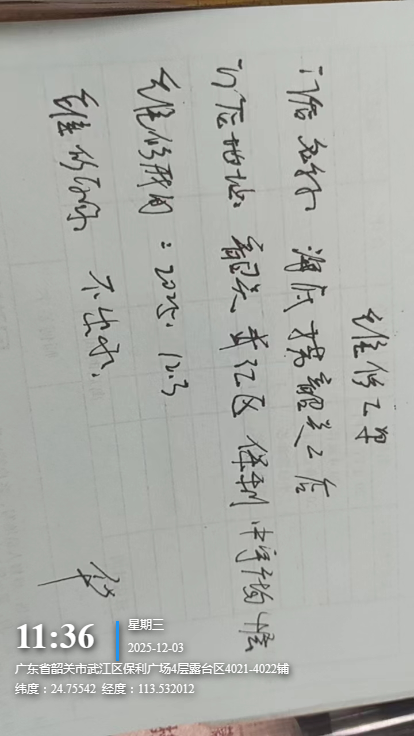 维修工单
门店名称：海底捞韶关二店
门店地址：韶关武江区保利中宇4楼
维修时间：2025.12.3
维修内容 不出水.
11:36
星期三
2025-12-03
广东省韶关市武江区保利广场4层露台区4021-4022铺
纬度：24.75542 经度：113.532012